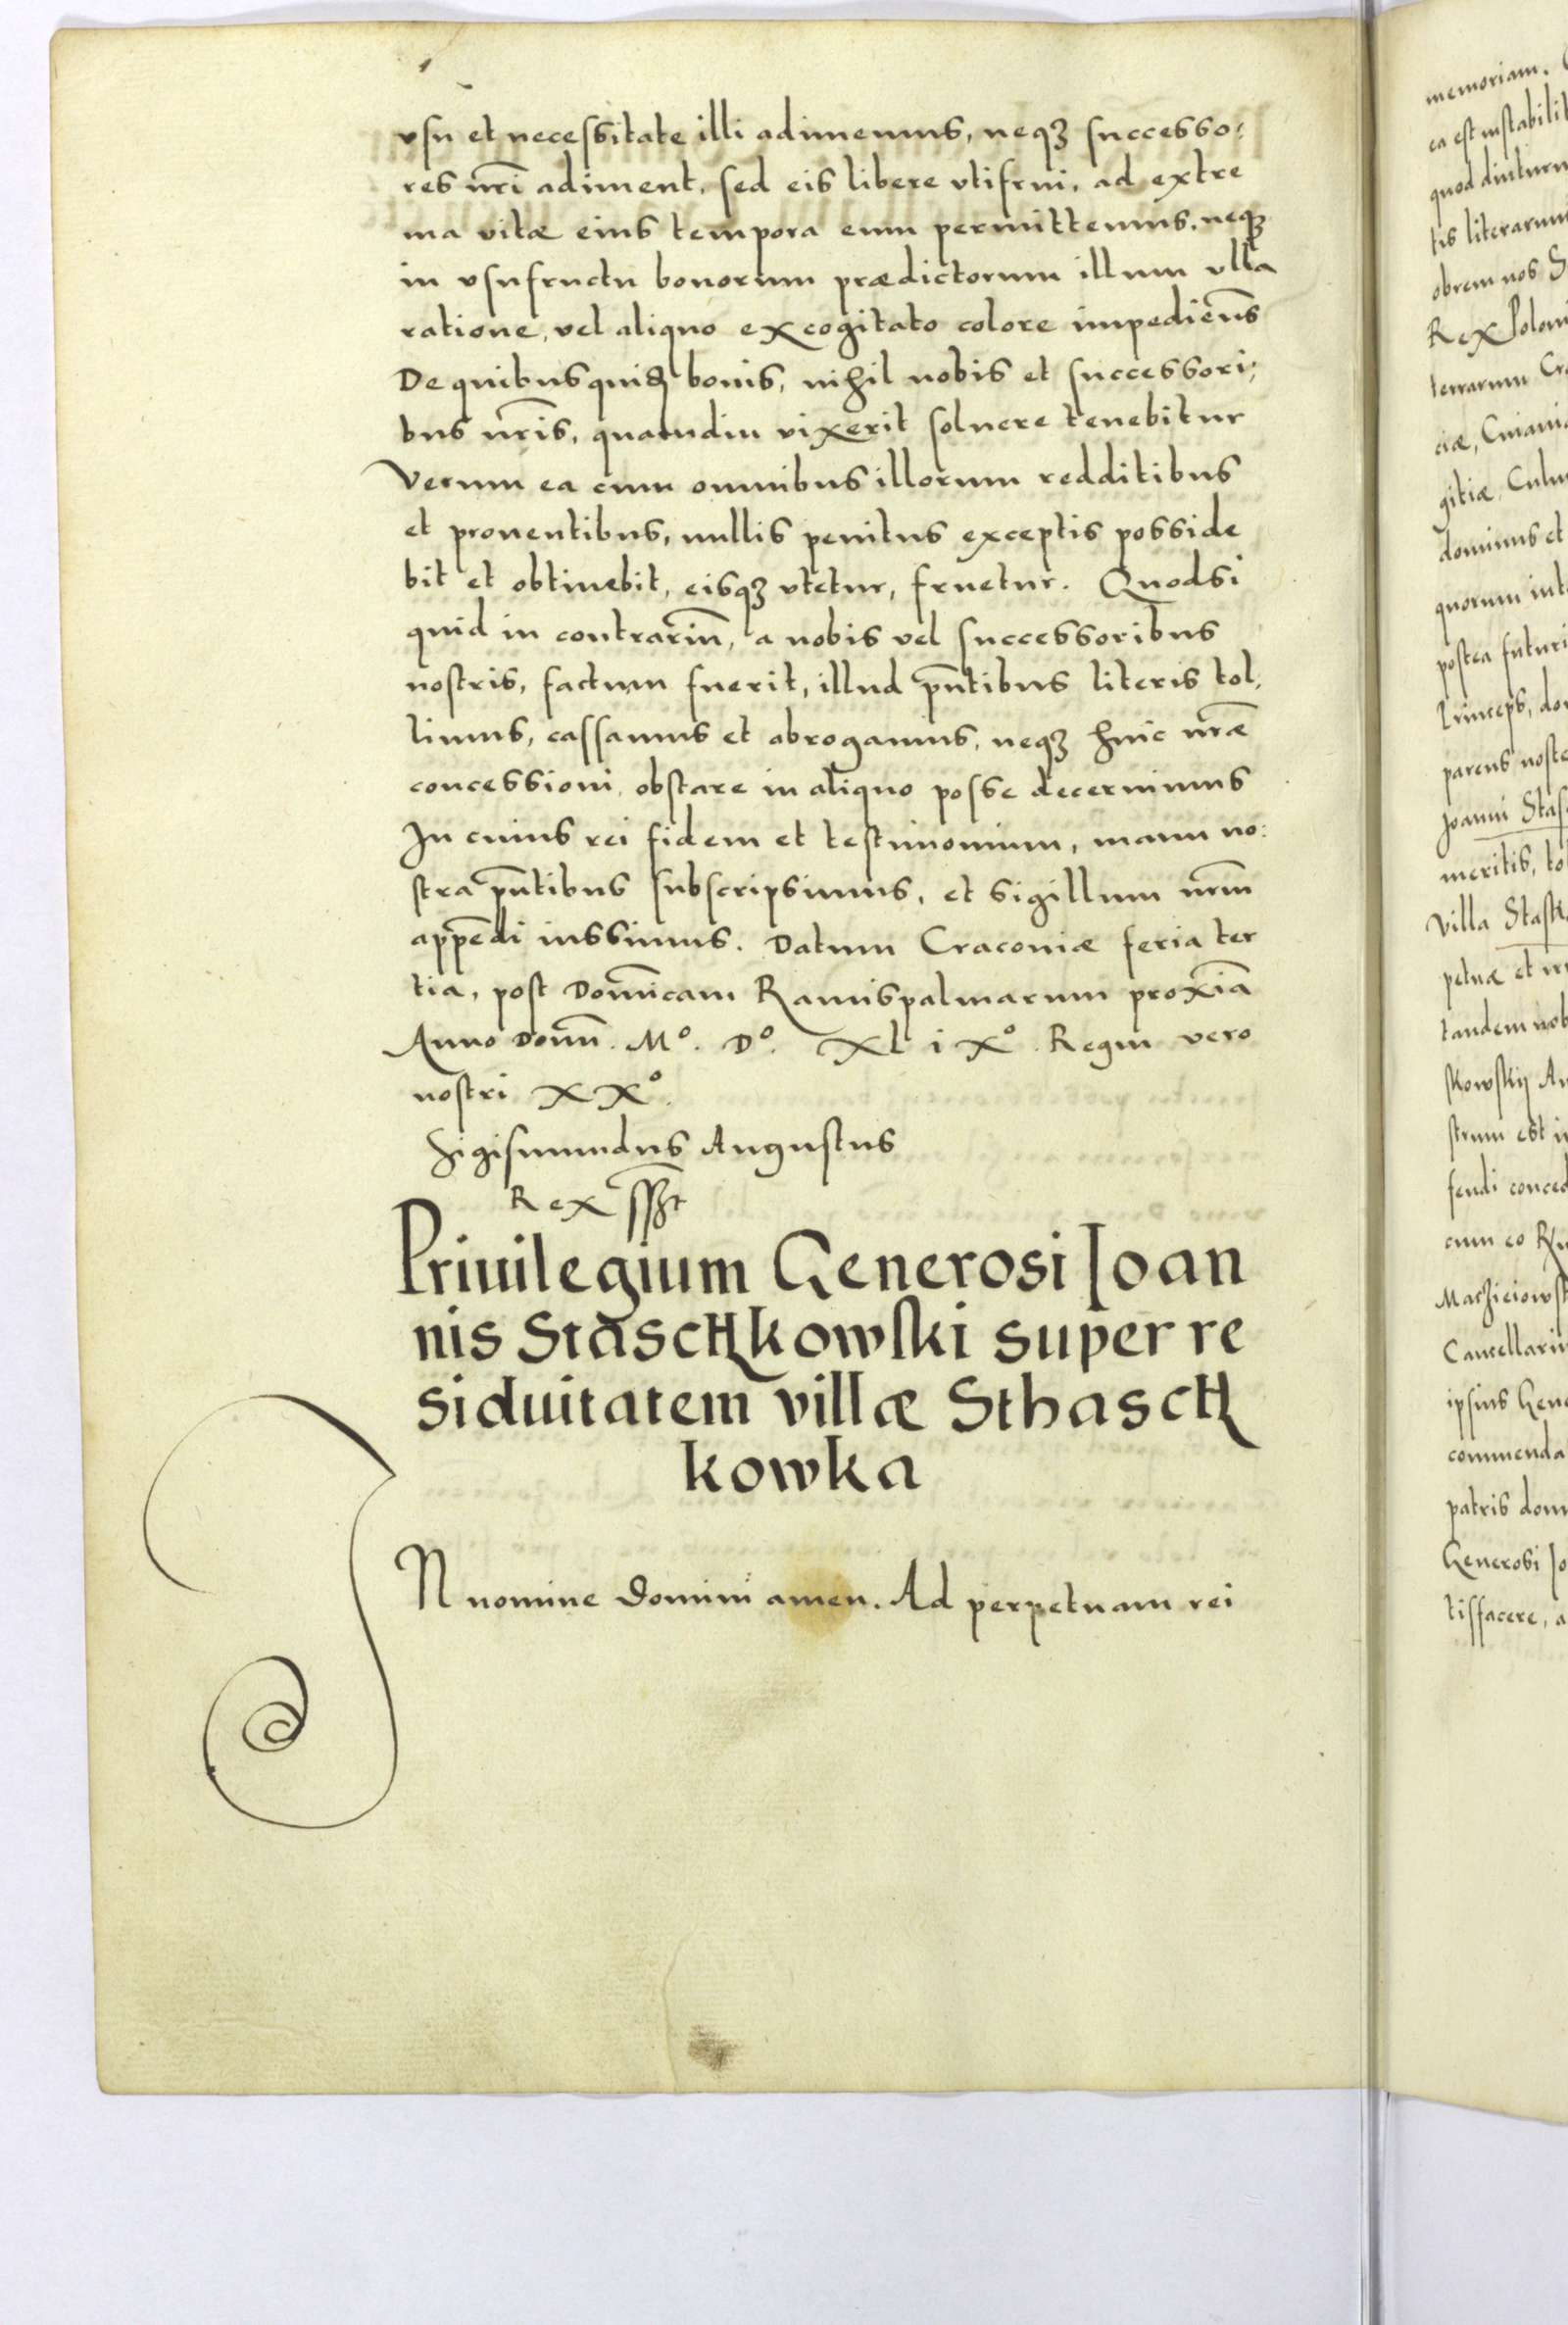 vsu et necessitate illi adimemus, neqꝫ successo:
res nr̃i adiment, sed eis libere vtifrui, ad extre
ma vitæ eius tempora eum permittemus. neqꝫ
in vsufructu bonorum prædictorum illum vlla
ratione, vel aliquo excogitato colore impediem̃s
De quibusquidꝫ bonis, nihil nobis et successori:
bus nr̃is, quamdiu vixerit soluere tenebitur
Verum ea cum omnibus illorum redditibus
et prouentibus, nullis penitus exceptis posside
bit et obtinebit, eisqꝫ vtetur, fruetur. Quodsi
quid in contrariũ, a nobis vel successoribus
nostris, factum fuerit, illud pñtibus literis tol,
limus, cassamus et abrogamus, neqꝫ huic nr̃æ
concessioni obstare in aliquo posse decernimus
In cuius rei fidem et testimonium, manu no:
stra pñtibus subscripsimus, et sigillum nr̃m
appẽdi iussimus. Datum Cracoviæ feria ter
tia, post Domĩcam Ramispalmarum proxĩa
Anno Domĩ. Mº. Dº. XL i Xº. Regni vero
nostri XXº.
Sigismundus Augustus
Rex sszt
Priuilegium Generosi Ioan
nis Staschkowski super re
siduitatem villæ Sthasch
kowka
IN nomine Domini amen. Ad perpetuam rei
memoriam.
ea est instabilit
quod diuturn
tis literarum
obrem nos S
Rex Polon
terrarum Cra
ciæ, Cuiauiæ
gitiæ, Culm
dominus et
quorum int
postea futuri
Princeps, do
parens noste
Joanni Stas
meritis, to
villa Stask
petuæ et irr
tandem nob
skowskij Au
strum est i
feudi conced
cum eo R
Macziciowsk
Cancellariu
ipsius Gene
commenda
patris dom
Generosi Jo
tisfacere, a